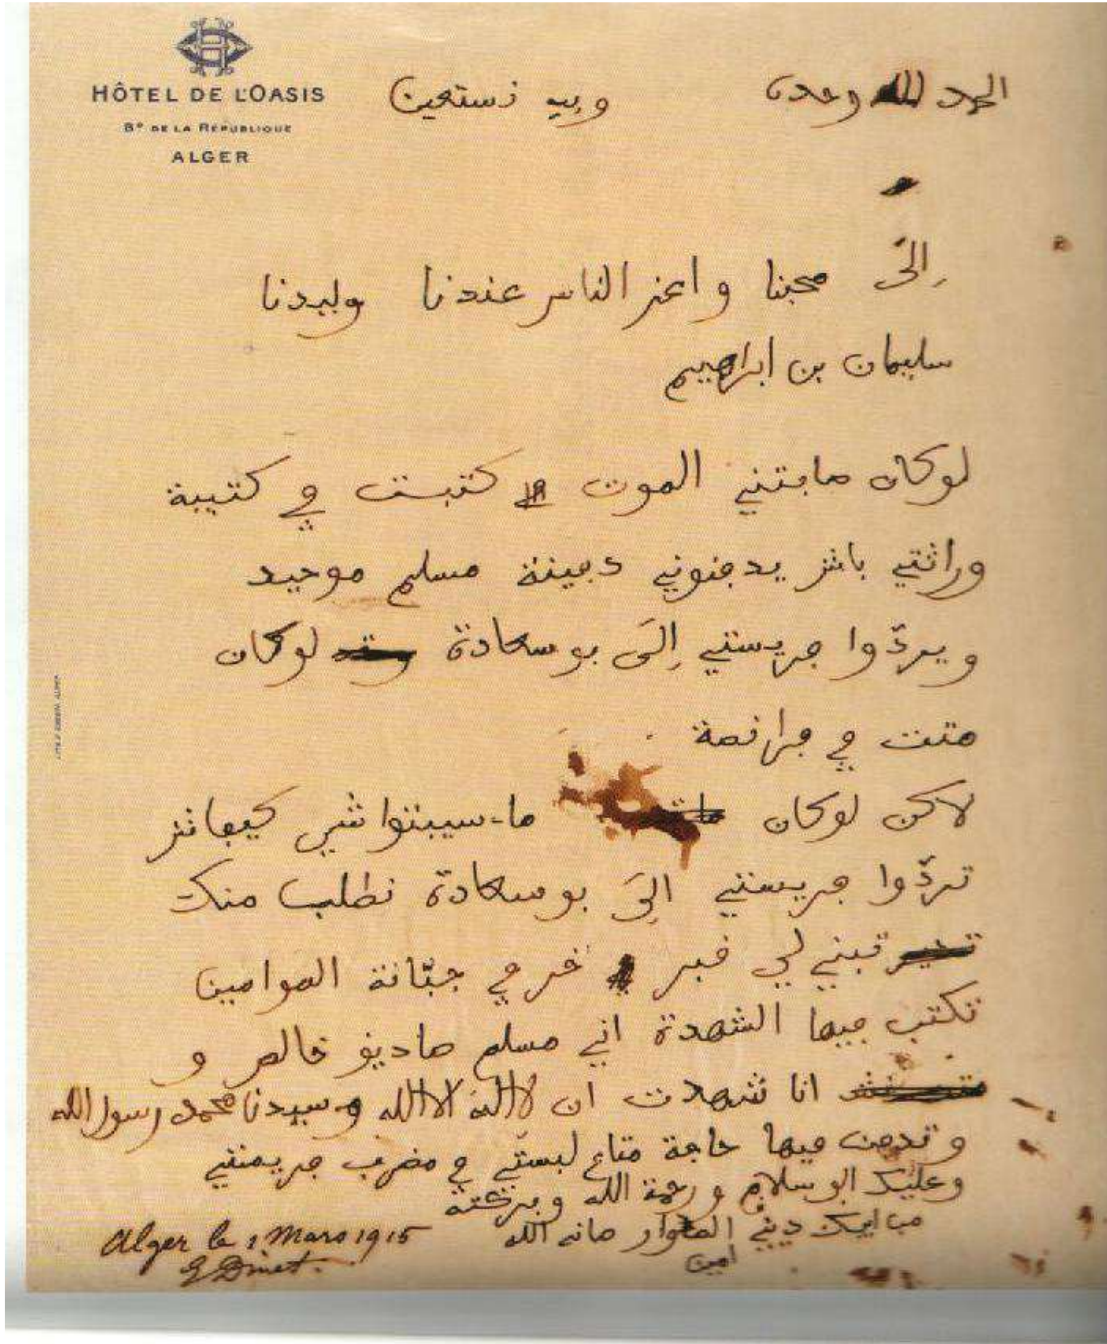 HÔTEL DE L'OASIS
Bd DE LA RÉPUBLIQUE
ALGER
الحمد لله وحده وبه نستعين
إِلَى محبنا واعز الناس عندنا وليدنا
سليمان بن ابراهيم
لوكان ماڢتني الموت كتبت ڢي كتيبة
وراثتي باش يدڢنوني دڢينة مسلم موحيد
ويردّوا جريستي إِلَى بوسعادة لوكان
متت ڢي ڢرانصة
لاكن لوكان ما سيبتواشي كيڢاش
تردّوا جريستي الَى بوسعادة نطلب منك
تبني لي قبر ڢي جبّانة الموامين
تكتب ڢيها الشهدة اني مسلم صاديق خالص و
انا شهدت ان لا اله الا الله وسيدنا محمد رسول الله
وتدڢن ڢيها حاجة متاع لبستي ڢي مضرب
وعليك ورحمة الله وبركته
الله
امين
Alger le 1 Mars 1915
E Dinet.